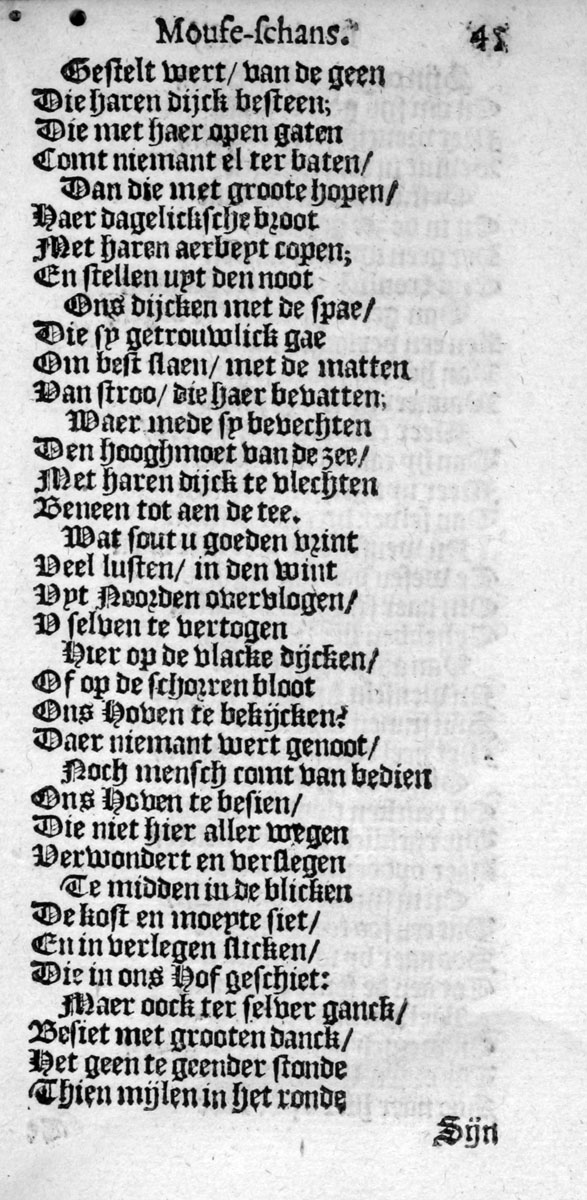 Moufe-schans. 45
Gestelt wert/ van de geen
Die haren dijck besteen;
Die met haer open gaten
Comt niemant el ter baten/
Dan die met groote hopen/
Haer dagelicksche broot
Met haren aerbeyt copen;
En stellen uyt den noot
Ons dijcken met de spae/
Die sy getrouwlick gae
Om best slaen/ met de matten
Van stroo/ die haer bevatten;
Waer mede sy bevechten
Den hooghmoet van de zee/
Met haren dijck te vlechten
Beneen tot aen de tee.
Wat sout u goeden vrint
Veel lusten/ in den wint
Uyt Noorden overvlogen/
U selven te vertogen
Hier op de vlacke dijcken/
Of op de schorren bloot
Ons Hoven te bekijcken?
Daer niemant wert genoot/
Noch mensch comt van bedien
Ons Hoven te besien/
Die niet hier aller wegen
Verwondert en verslegen
Te midden in de blicken
De kost en moeyte siet/
En in verlegen slicken/
Die in ons Hof geschiet:
Maer oock ter selver ganck/
Besiet met grooten danck/
Het geen te geender stonde
Thien mijlen in het ronde
Sijn